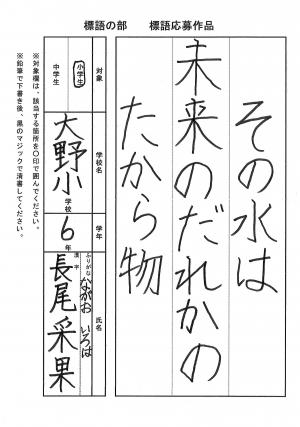 標語の部　標語応募作品
その水は
未来のだれかの
たから物
対象
小学生
中学生
学校名
大野小学校
学年
6年
氏名
ふりがな
ながお いろは
漢字
長尾采果
※対象欄は、該当する箇所を〇印で囲んでください。
※鉛筆で下書き後、黒のマジックで清書してください。